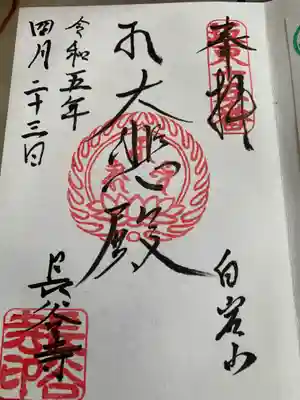 奉拝
白岩山
大悲殿
令和五年
四月二十三日
長谷寺